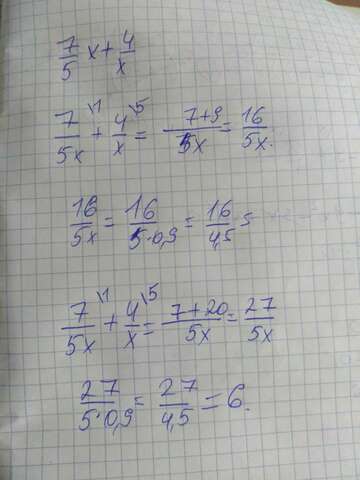 7/5 x + 4/x
7/5x \1 + 4/x \5 = 7+9/5x = 16/5x.
16/5x = 16/5·0,9 = 16/4,5 =
7/5x \1 + 4/x \5 = 7+20/5x = 27/5x
27/5·0,9 = 27/4,5 = 6.